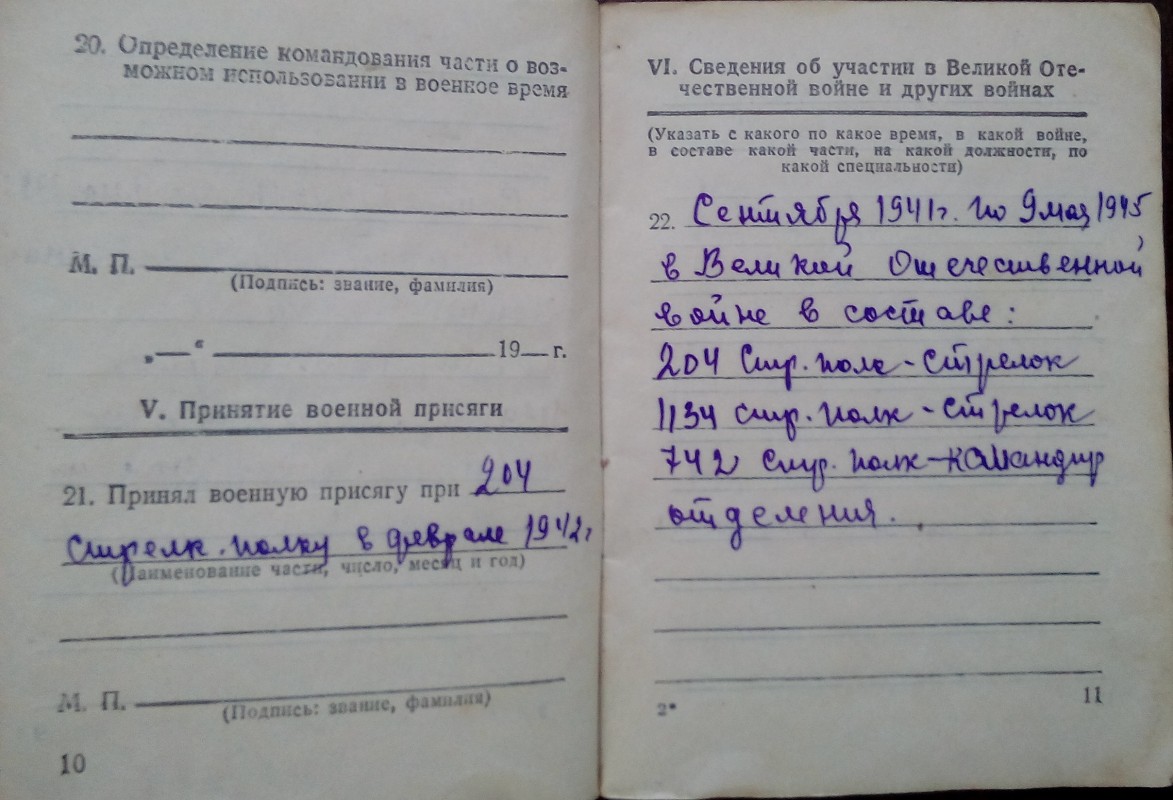 20. Определение командования части о воз-
можном использовании в военное время
М. П.
(Подпись: звание, фамилия)
„—“ 19— г.
V. Принятие военной присяги
21. Принял военную присягу при 204
стрелк. полку в феврале 1942г
(Наименование части, число, месяц и год)
М. П.
(Подпись: звание, фамилия)
10
VI. Сведения об участии в Великой Оте-
чественной войне и других войнах
(Указать с какого по какое время, в какой войне,
в составе какой части, на какой должности, по
какой специальности)
22. Сентября 1941г. по 9 мая 1945
в Великой Отечественной
войне в составе:
204 Стр. полк - Стрелок
1134 стр. полк - Стрелок
742 Стр. полк - командир
отделения.
2*
11